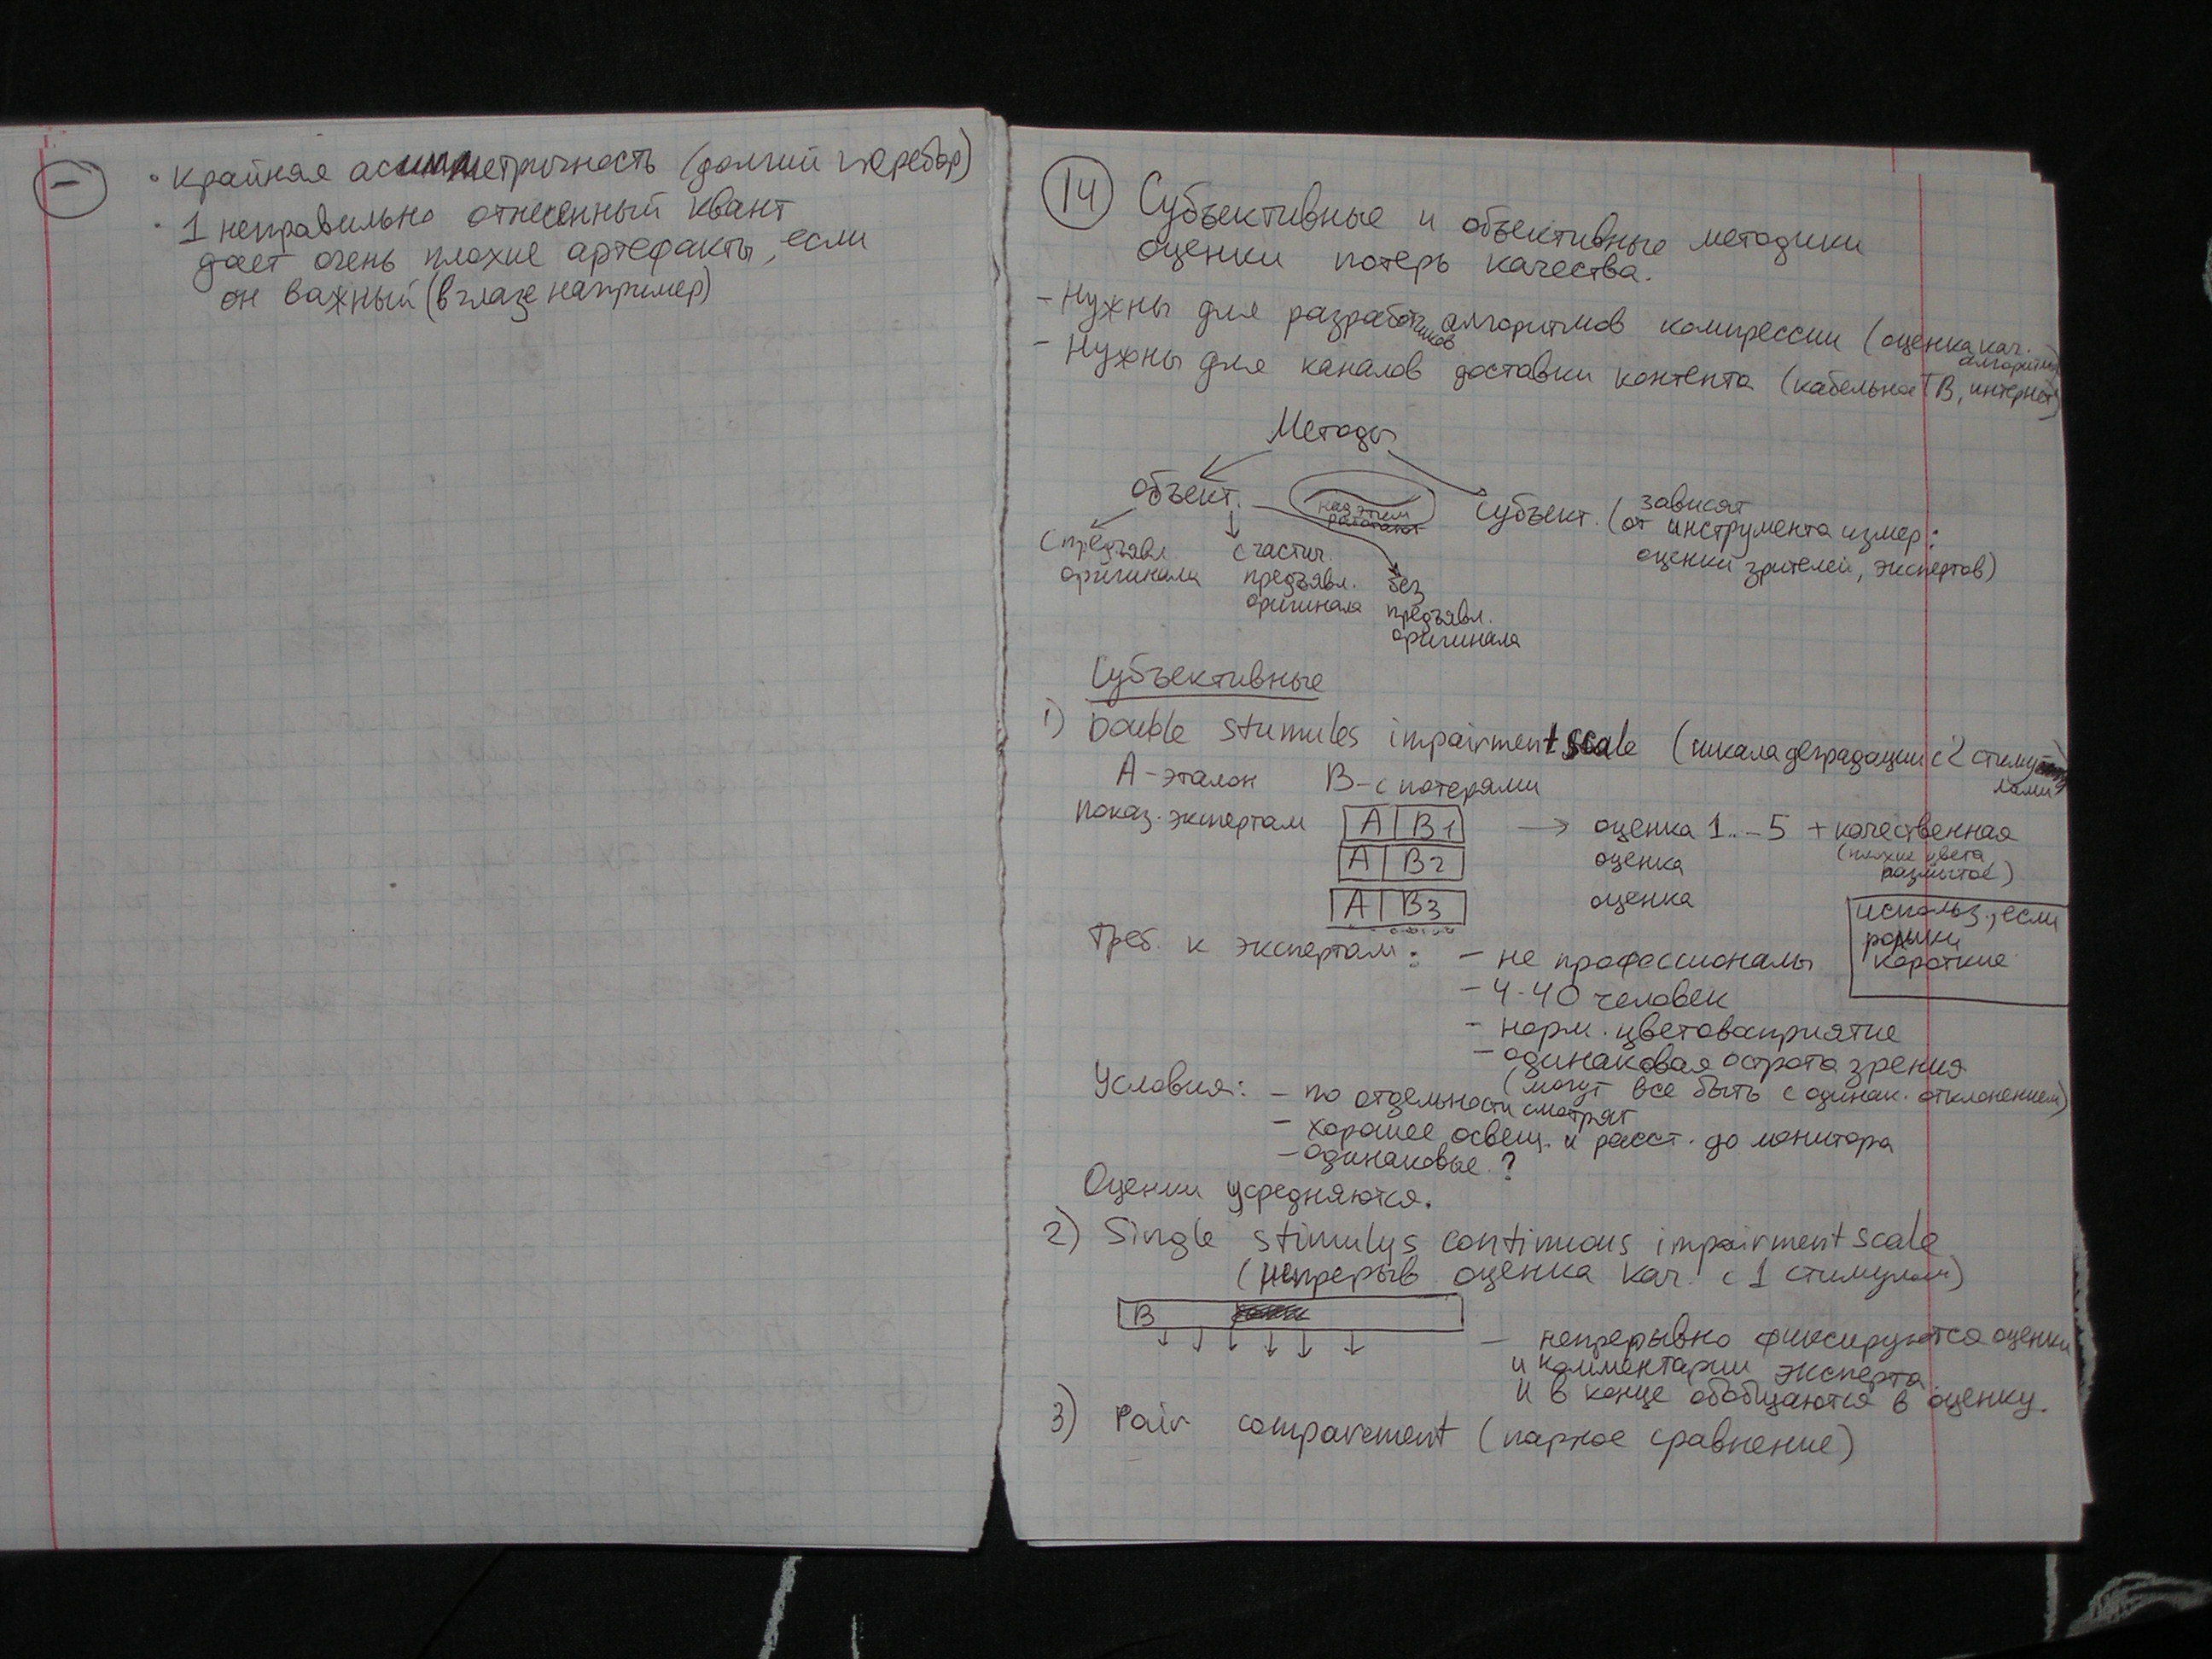 −
• Крайняя асимметричность (долгий перебор)
• 1 неправильно отнесенный квант
дает очень плохие артефакты, если
он важный (в глазе например)
14 Субъективные и объективные методики
оценки потерь качества.
- Нужны для разработчиков алгоритмов компрессии (оценка кач. алгоритма)
- Нужны для каналов доставки контента (кабельное ТВ, интернет)
Методы
объект.
над этим
работают
субъект. (зависят
от инструмента измер:
оценки зрителей, экспертов)
с предъявл.
оригинала
с частич.
предъявл.
оригинала
без
предъявл.
оригинала
Субъективные
1) Double stumules impairment scale (шкала деградации с 2 стимулами)
А-эталон В-с потерями
показ. экспертам А В1 → оценка 1...5 + качественная
(плохие цвета
размытое)
А В2 оценка
А В3 оценка
использ., если
ролики
короткие
Треб. к экспертам: - не профессионалы
- 4-40 человек
- норм. цветовосприятие
- одинаковая острота зрения
(могут все быть с одинак. отклонением)
Условия: - по отдельности смотрят
- хорошее освещ. и расст. до монитора
- одинаковые ?
Оценки усредняются.
2) Single stimulys continuous impairment scale
(непрерыв оценка кач. с 1 стимулом)
В
- непрерывно фиксируются оценки
и комментарии эксперта
и в конце обобщаются в оценку.
3) Pair comparement (парное сравнение)